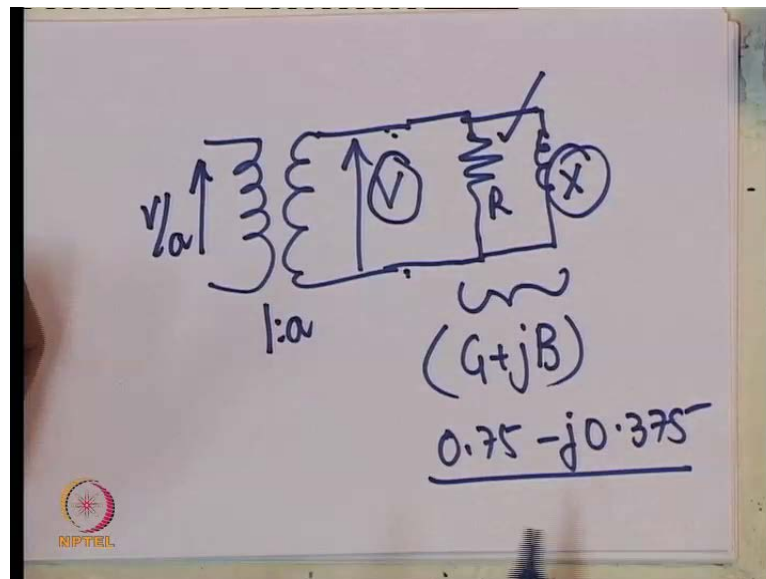 V/a
V
R
X
1:a
(G+jB)
0.75 - j0.375
NPTEL